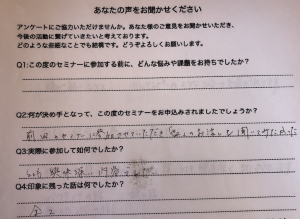 あなたの声をお聞かせください
アンケートにご協力いただけませんか。あなた様のご意見をお聞かせいただき、
今後の活動に繋げていきたいと考えております。
どのような些細なことでも結構です。どうぞよろしくお願いします。
Q1:この度のセミナーに参加する前に、どんな悩みや課題をお持ちでしたか？
Q2:何が決め手となって、この度のセミナーをお申込みされましたでしょうか？
前回のセミナーに参加させていただき のお話しを聞いてみたかった
Q3:実際に参加して如何でしたか？
内容でした
Q4:印象に残った話は何でしたか？
全て